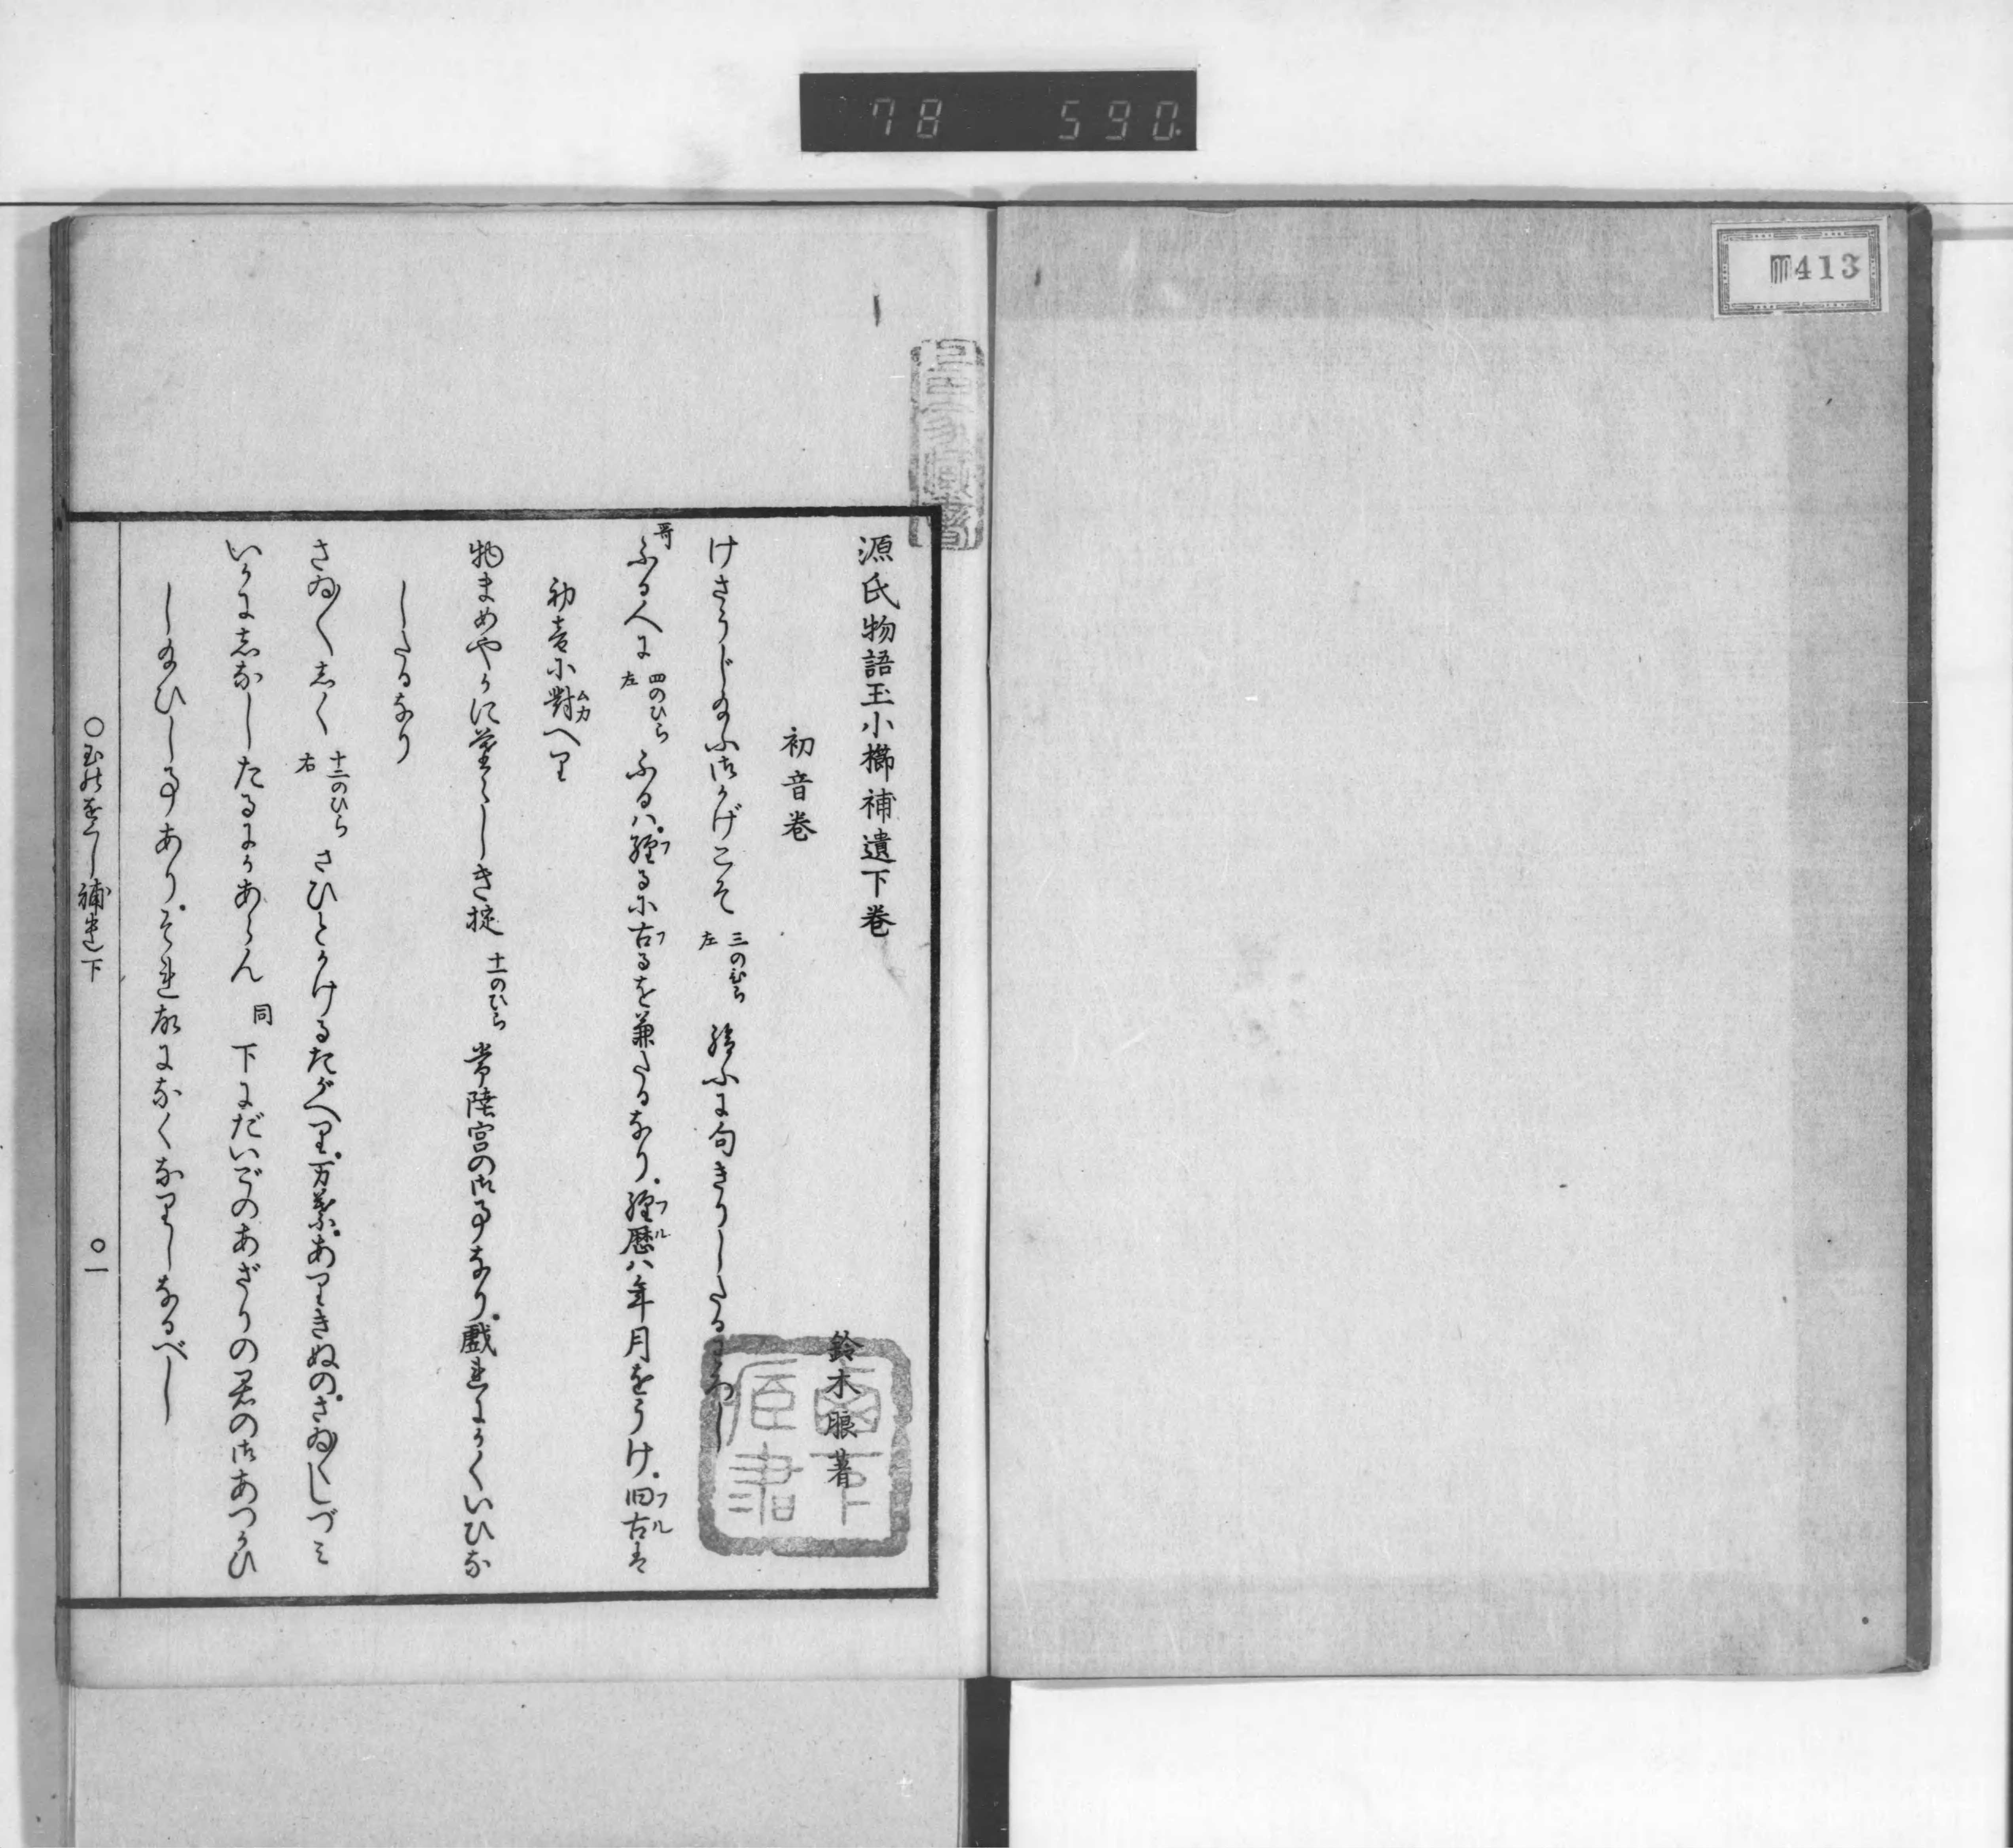 78 590
413
源氏物語玉小櫛補遺下巻
鈴木朖著
初音巻
けさうじ給ふ御かげこそ 三のひら左 給ふに句きりしたるわろし
哥 ふる人に 四のひら左 ふるハ経るに古るを兼たるなり。経歴ハ年月をうけ。旧古は
フ フ フル フル
初音に對へり
ムカ
物まめやかに 掟 十一のひら 常陸宮の御事なり。戯れにかくいひな
したるなり
さゐ〱しく 十二のひら右 さひとかけるたがへり。万葉。ありきぬの。さゐ〱しづミ
いかにしなしたるにかあらん 同 下にだいごのあざりの君の御あつかひ
し給ひし事あり。それ故になくなりしなるべし
○玉のをぐし補遺下 ○一